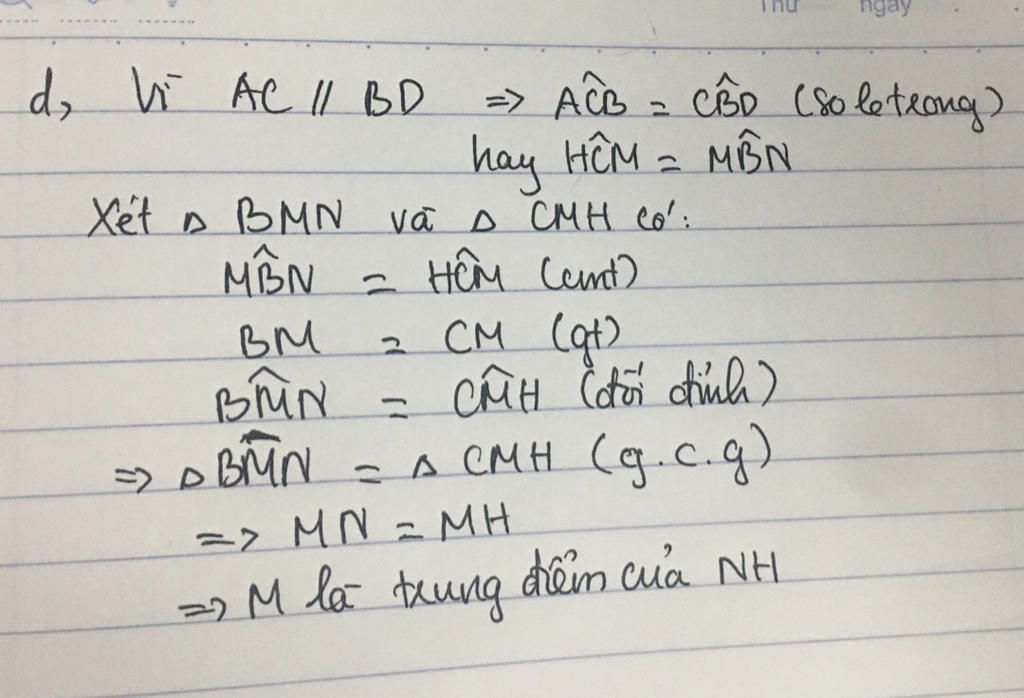 Thứ ngày
d, Vì AC // BD => AĈB = CB̂D (so le trong)
hay HĈM = MB̂N
Xét Δ BMN và Δ CMH có:
MB̂N = HĈM (cmt)
BM = CM (gt)
BM̂N = CM̂H (đối đỉnh)
=> Δ BMN = Δ CMH (g.c.g)
=> MN = MH
=> M là trung điểm của NH